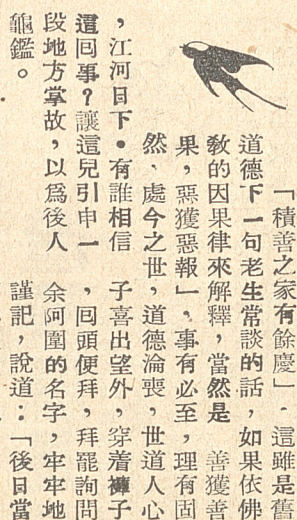 「積善之家有餘慶」．這雖是舊
道德下一句老生常談的話，如果依佛
敎的因果律來解釋，當然是　善獲善
果，惡獲惡報」．事有必至，理有固
然．處今之世，道德淪喪，世道人心
，江河日下．有誰相信
這囘事？讓這兒引申一
段地方掌故，以爲後人
龜鑑。
子喜出望外，穿着褲子
，囘頭便拜，拜罷詢問
余阿圍的名字，牢牢地
謹記，說道：「後日當